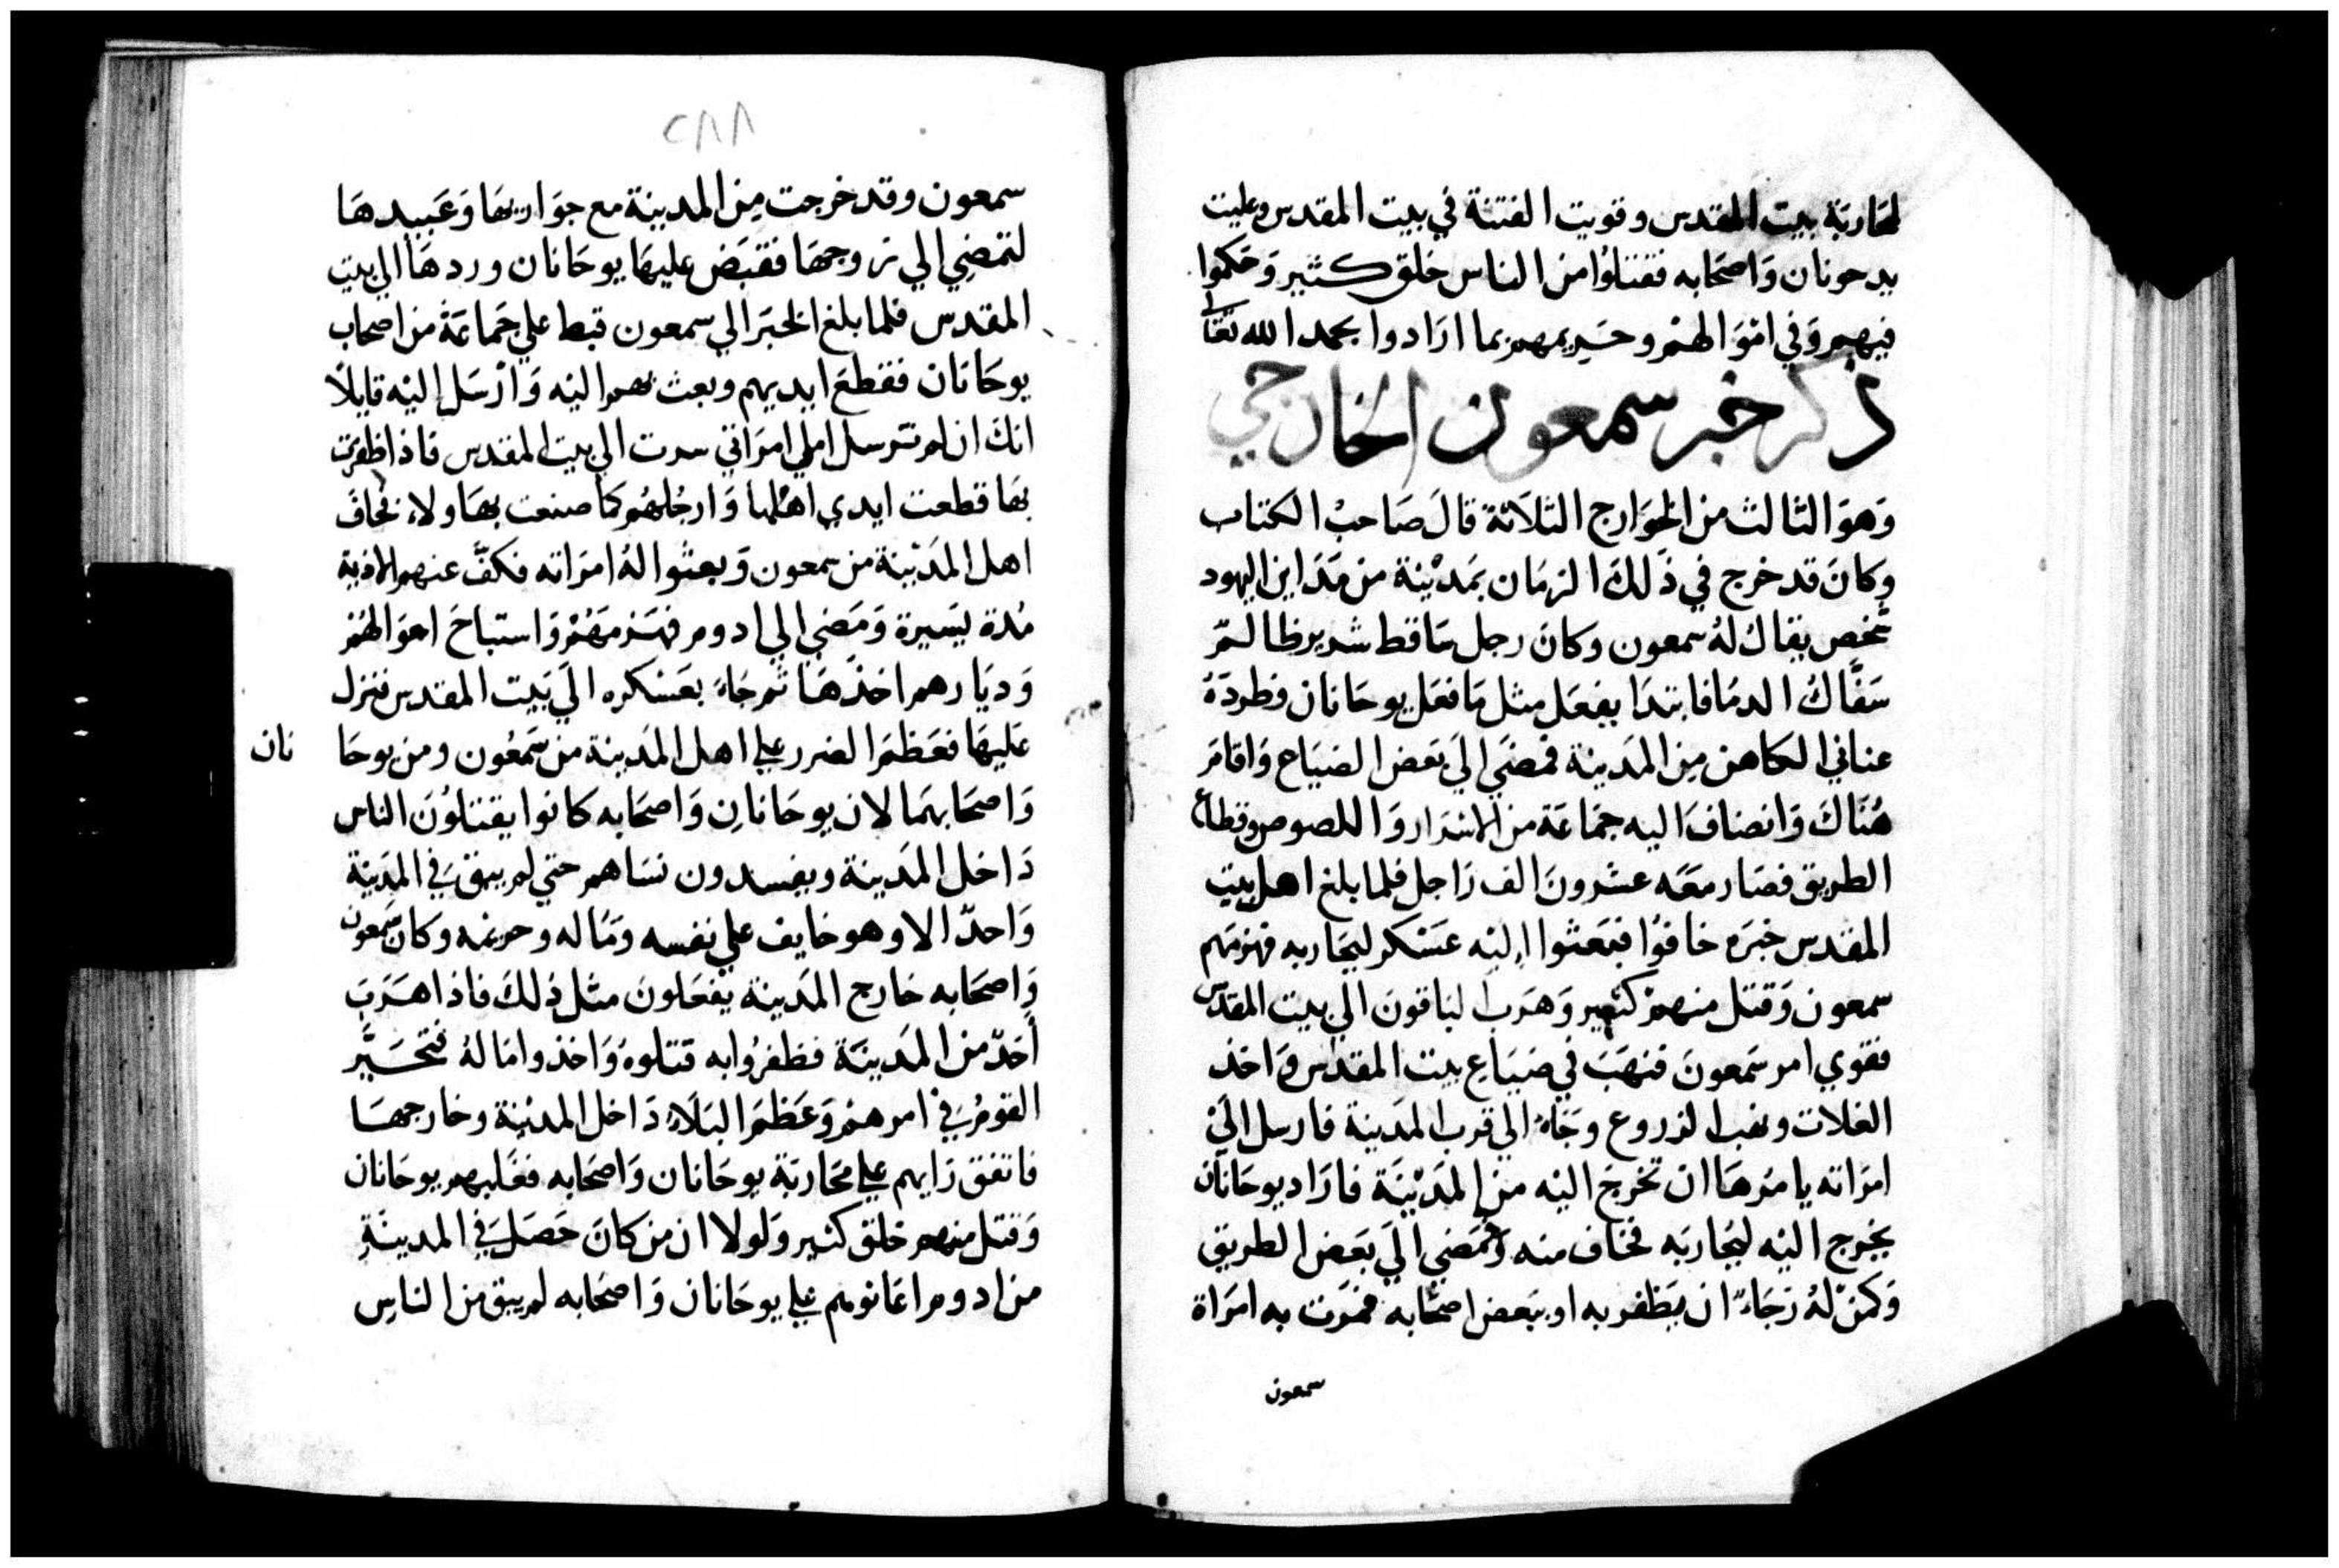 لمحاربَة بيت المقدس وقويت الفتنة في بيت المقدس وعليت
يد حونان وَاصحَابه فقتلوُا من الناس خلق كثير وَحكموا
فيهم وَفي امْوَالهمْ وحَريمهم بما ارَادوا بحمد الله تعَالى
ذكر خبر سمعون الخارجي
وَهوَ الثالث من الخوَارج الثلاَثة قالَ صَاحبْ الكتاب
وكانَ قد خرج في ذَلكَ الزمَان بمَديْنة من مَدَاين اليهود
شخص يقالُ لهُ سمعون وكانَ رجل سَاقط شرير ظالمّ
سَفَّاكُ الدمَا فابتدَا يفعَل مثل مَا فعَل يوحَانان فطردَهُ
عناني الكاهن مِن المَدينة فمضَي الَي بعَض الضيَاع وَاقامَ
هُنَاكَ وَانضافَ اليه جمَاعَة من الاشرَار وَاللصوص وقطاع
الطريق فصَار معَه عشرونَ الف رَاجل فلما بلغ اهل بيت
المقدس خبَره خافوُا فبعَثوا اليْه عسَكر ليحَاربه فهزمَهم
سمعون وَقتل منهمْ كثير وَهرَب الباقونَ الي بيت المقدس
فقوي امر سَمعونَ فنهَبَ في ضيَاع بيت المقدس وَاخذ
الغلات ونهب الزروع وجَاءَ الي قرب المَدينة فارسل اليَ
امرَاته يامُرهَا ان تخرجَ اليْه من المَديْنَة فارَاد يوحَانان
يخرج اليْه ليحَاربَه فخاف منه وَمضَي الَي بعَض الطريق
وَكمنْ لهُ رَجَاءً ان يظَفر به او ببَعض اصحَابه فمَرت به امرَاة
سمعون
٢٨٨
سمعون وقد خرجت مِن المدينة مع جوَاريهَا وَعَبيدهَا
لتمضِي الي زوجهَا فقبَض عليهَا يوحَانان وردهَا الي بيت
المقدس فلما بلغ الخبَر الي سمعون قبط علي جمَاعَة من اصحاب
يوحَانان فقطعَ ايديهم وبعث بهم اليْه وَارْسَل اليْه قايلاً
انكَ ان لم ترسل الي امرَاتي سرت الي بيت المقدس فاذا ظفرت
بهَا قطعت ايدي اهلها وَارجُلهُم كما صنعت بهَاولاء فخافَ
اهل المدَيْنة من سمعون وَبعثوا لهُ امرَاته فكفَّ عنهم الاذية
مُدة يسَيرة وَمَضي الي ادوم فهزمَهُمْ وَاستباحَ اموَالهُمْ
وَديَارهم اخذَهَا ثم جَاءَ بعَسْكره الَي بَيت المقدس فنزل
عَليهَا فعَظمَ الضرر علي اهل المَدينة من سَمعُون ومن يوحَا نان
وَاصحَابهمَا لان يوحَانانِ وَاصحَابه كانوا يقتلوُنَ الناس
دَاخل المَدينة ويفسدون نسَاهم حتي لم يبق فَي المدَينة
وَاحدّ الا وهو خايف علي نفسه ومَاله وحريمه وكان سَمعون
وَاصحَابه خارج المَدينة يفعَلونَ مثل ذلكَ فاذا هَرَبَ
أحَدّ من المَدينَة فظفرُوا به قتلوهُ وَاخذوا مَا لهُ فتحَيَّر
القومُ فَي امرهمْ وَعَظمَ البَلاَء دَاخل المديْنة وخارجهَا
فاتفق رَايهم علي محَاربَة يوحَانان وَاصحَابه فغَلبهم يوحَانان
وَقتل منهم خلق كثير وَلولا ان من كانَ حَصَل فَي المدينَةِ
من ادوم اعَانوهم علي يوحَانان وَاصحَابه لم يبق من الناسِ